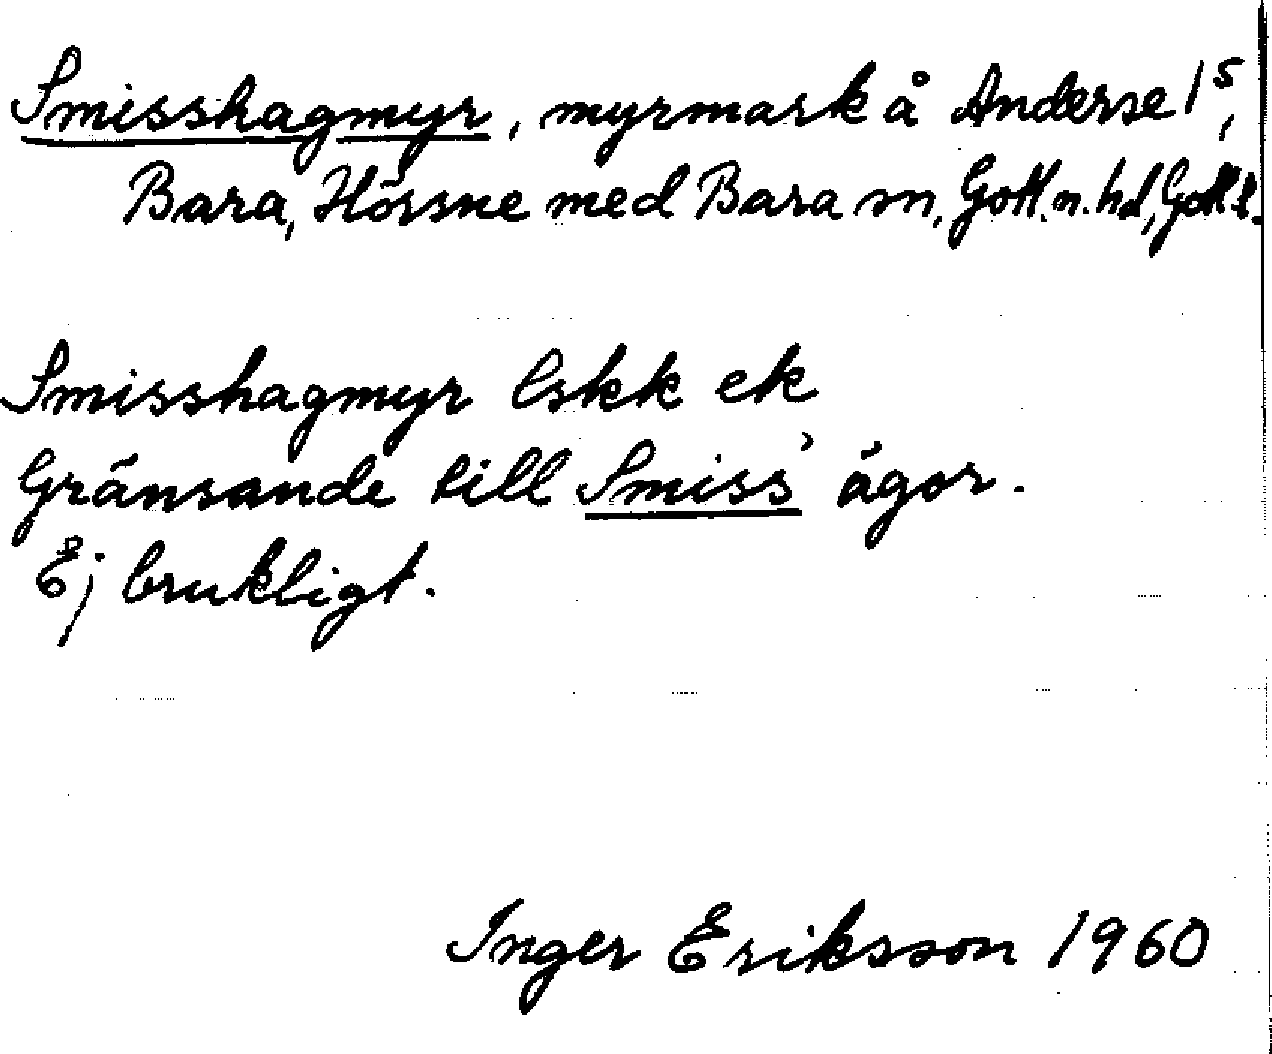 Smisshagmyr, myrmark å Anderse 1⁵,
Bara, Hörsne med Bara sn, Gotl. n. hd, Gotl. l.
Smisshagmyr lskk ek
Gränsande till Smiss' ägor.
Ej brukligt.
Inger Eriksson 1960